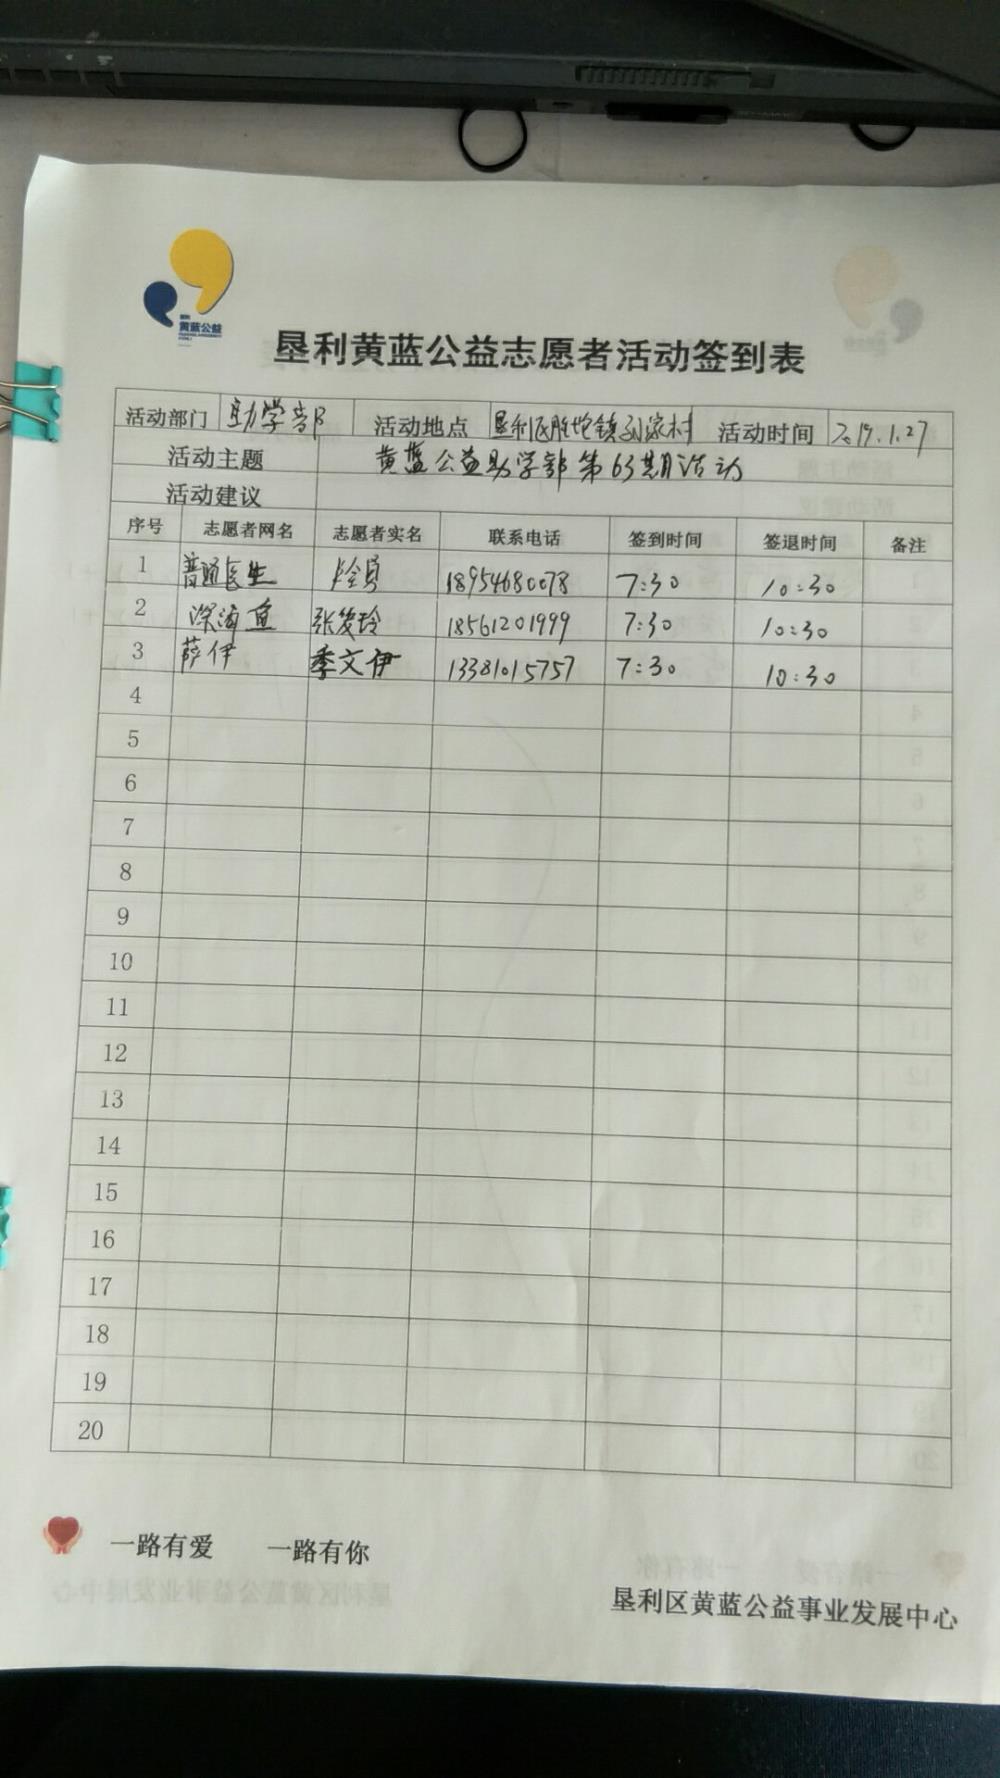 黄蓝公益
垦利黄蓝公益志愿者活动签到表
活动部门 助学部 活动地点 垦利区胜坨镇孙家村 活动时间 2019.1.27
活动主题 黄蓝公益助学部第63期活动
活动建议
序号 志愿者网名 志愿者实名 联系电话 签到时间 签退时间 备注
1 普通医生 18954680078 7:30 10:30
2 深海鱼 18561201999 7:30 10:30
3 萨伊 季文伊 13381015757 7:30 10:30
4
5
6
7
8
9
10
11
12
13
14
15
16
17
18
19
20
一路有爱 一路有你
垦利区黄蓝公益事业发展中心